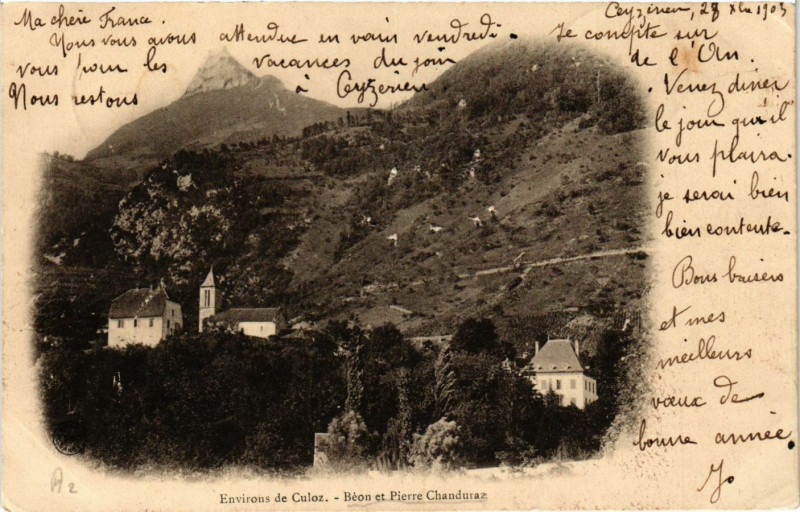 Ceyzérieu, 28 Xbre 1903
Ma chère France.
Nous vous avons attendue en vain vendredi. Je compte sur
vous pour les vacances du jour de l'An.
Nous restons à Ceyzérieu
. Venez diner
le jour qu'il
vous plaira.
je serai bien
bien contente.
Bons baisers
et mes
meilleurs
vœux de
bonne année.
A2
Environs de Culoz. - Bèon et Pierre Chanduraz